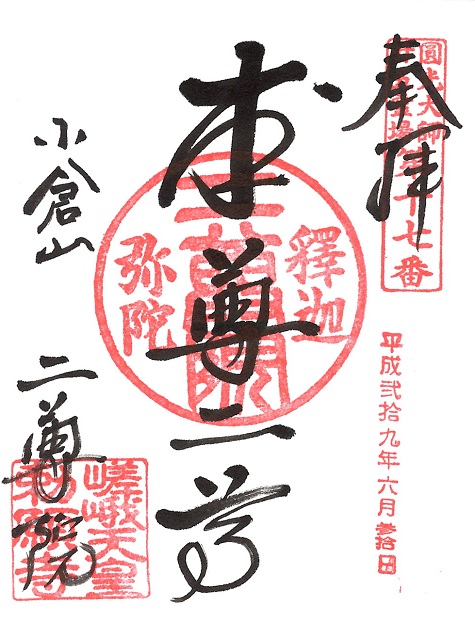 奉拝
圓光大師
第十七番
平成弐拾九年六月参拾日
本尊二尊
釋迦
弥陀
二尊院
小倉山
二尊院
嵯峨天皇
勅願寺